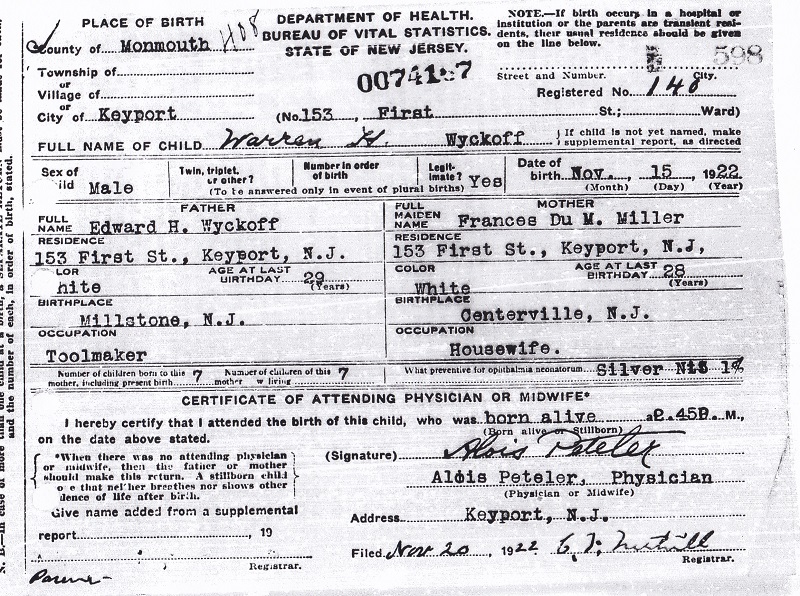 PLACE OF BIRTH
County of Monmouth
H08
Township of
or
Village of
or
City of Keyport
DEPARTMENT OF HEALTH.
BUREAU OF VITAL STATISTICS.
STATE OF NEW JERSEY.
NOTE.—If birth occurs in a hospital or
institution or the parents are transient resi-
dents, their usual residence should be given
on the line below.
598
Street and Number. City.
Registered No. 148
(No. 153, First St.; Ward)
FULL NAME OF CHILD Warren H. Wyckoff
If child is not yet named, make
supplemental report, as directed
Sex of
ild Male
Twin, triplet,
or other?
Number in order
of birth
(To be answered only in event of plural births)
Legit-
imate? Yes
Date of
birth Nov. 15, 1922
(Month) (Day) (Year)
FATHER
FULL
NAME Edward H. Wyckoff
RESIDENCE
153 First St., Keyport, N.J.
LOR
hite
AGE AT LAST
BIRTHDAY 29
(Years)
BIRTHPLACE
Millstone, N.J.
OCCUPATION
Toolmaker
MOTHER
FULL
MAIDEN
NAME Frances Du M. Miller
RESIDENCE
153 First St., Keyport, N.J,
COLOR
White
AGE AT LAST
BIRTHDAY 28
(Years)
BIRTHPLACE
Centerville, N.J.
OCCUPATION
Housewife.
Number of children born to this
mother, including present birth 7
Number of children of this
mother w living 7
What preventive for ophthalmia neonatorum Silver
CERTIFICATE OF ATTENDING PHYSICIAN OR MIDWIFE*
I hereby certify that I attended the birth of this child, who was born alive a 2.45P. M.,
(Born alive or Stillborn)
on the date above stated.
*When there was no attending physician
or midwife, then the father or mother
should make this return. A stillborn child
o e that neither breathes nor shows other
dence of life after birth.
(Signature) Alois Peteler
Alois Peteler, Physician
(Physician or Midwife)
Give name added from a supplemental
report , 19
Registrar.
Address Keyport, N.J.
Filed Nov 20, 1922
Registrar.
N. B.—In case of more
and the number of each, in order of birth, stated.